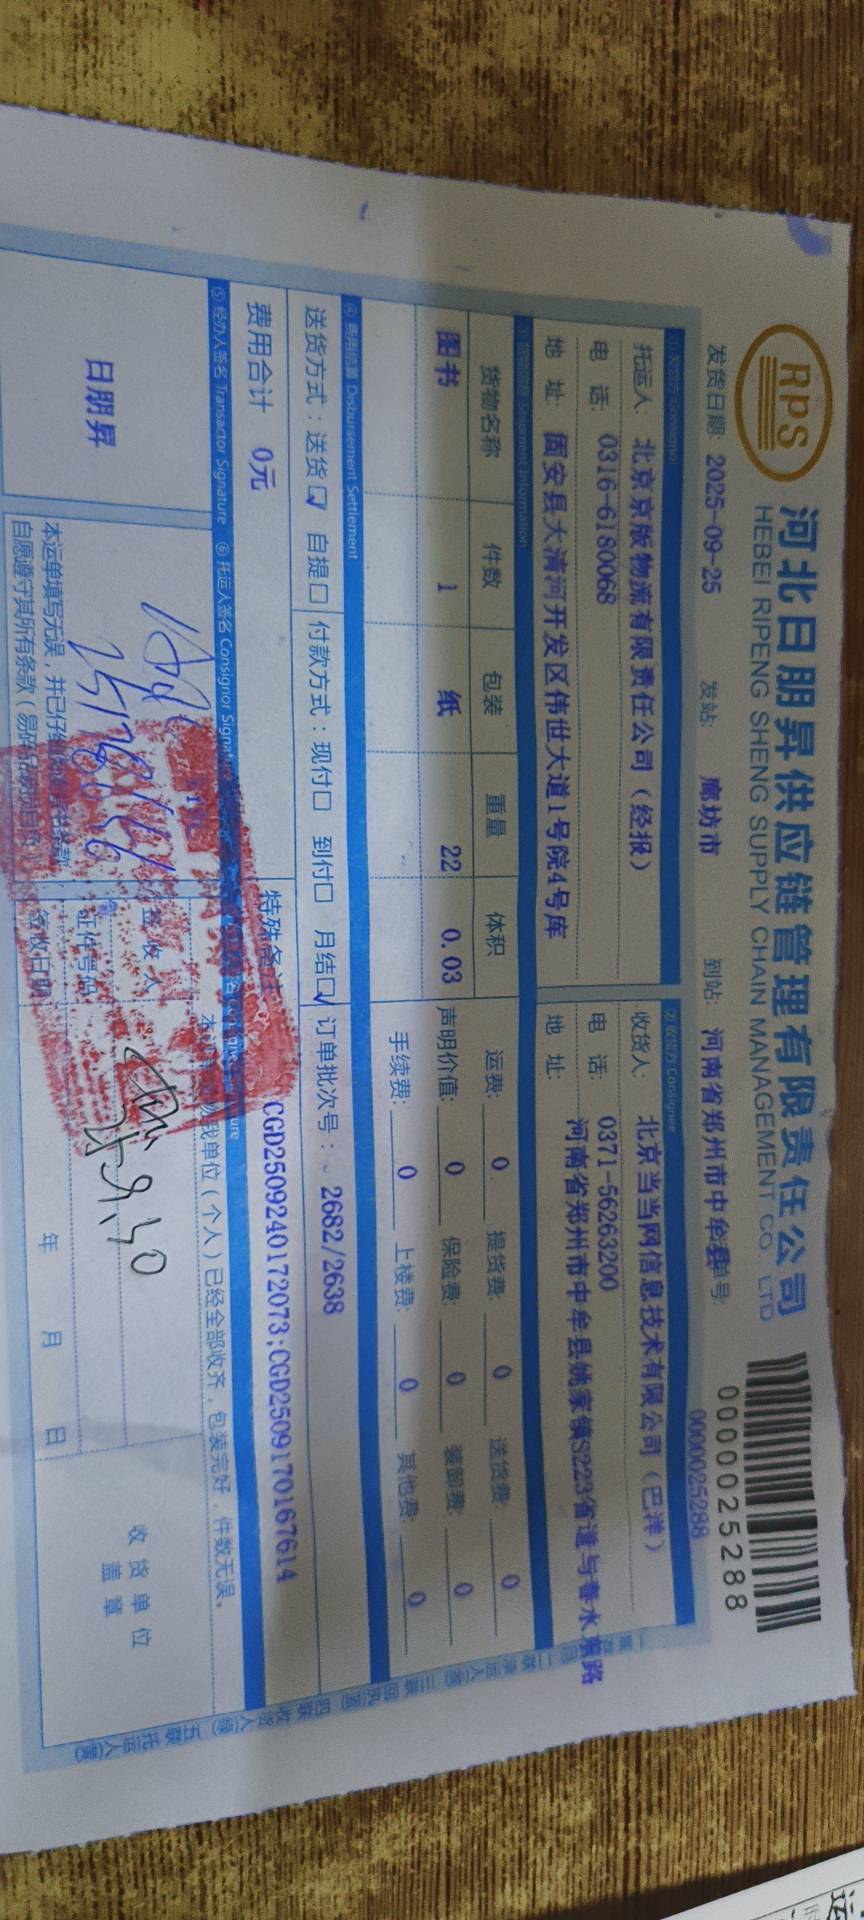 RPS
河北日朋昇供应链管理有限责任公司
HEBEI RIPENG SHENG SUPPLY CHAIN MANAGEMENT CO., LTD
0000025288
发货日期: 2025-09-25 发站: 廊坊市 到站: 河南省郑州市中牟县 单号: 0000025288
①发货方 Consignor ②收货方 Consignee
托运人: 北京京版物流有限责任公司（经报） 收货人: 北京当当网信息技术有限公司（巴洋）
电 话: 0316-6180068 电 话: 0371-56263200
地 址: 固安县大清河开发区伟世大道1号院4号库 地 址: 河南省郑州市中牟县姚家镇S223省道与春水东路
③货物信息 Shipment Information
货物名称 件数 包装 重量 体积 运费: 0 提货费: 0 送货费: 0
图书 1 纸 22 0.03 声明价值: 0 保险费: 0 装卸费: 0
手续费: 0 上楼费: 0 其他费: 0
④费用结算 Disbursement Settlement
送货方式：送货☑ 自提□ 付款方式：现付□ 到付□ 月结☑ 订单批次号： 2682/2638
费用合计 0元 特殊备注 CGD2509240172073;CGD2509170167614
⑤经办人签名 Transactor Signature ⑥托运人签名 Consignor Signature
单位（个人）已经全部收齐，包装完好，件数无误。
日朋昇
签收人
证件号码
9.30
收货单位
盖章
本运单填写无误，并已仔细
自愿遵守其所有条款
签收日期 年 月 日